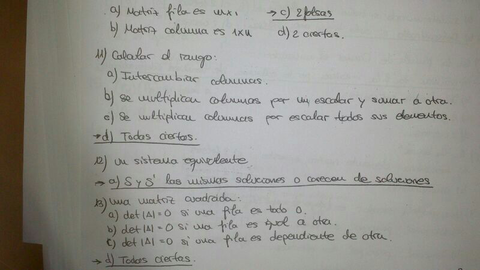 a) Matriz fila es mx1 → c) 2 falsas
b) Matriz columna es 1xn d) 2 ciertas.
11) Calcular el rango:
a) Intercambiar columnas.
b) Se multiplican columnas por un escalar y sumar a otra.
c) Se multiplican columnas por escalar todos sus elementos.
→ d) Todas ciertas.
12) un sistema equivalente
→ a) S y S' las mismas soluciones o carecen de soluciones
13) una matriz cuadrada:
a) det |A| = 0 si una fila es todo 0.
b) det |A| = 0 si una fila es igual a otra.
c) det |A| = 0 si una fila es dependiente de otra.
→ d) Todas ciertas.